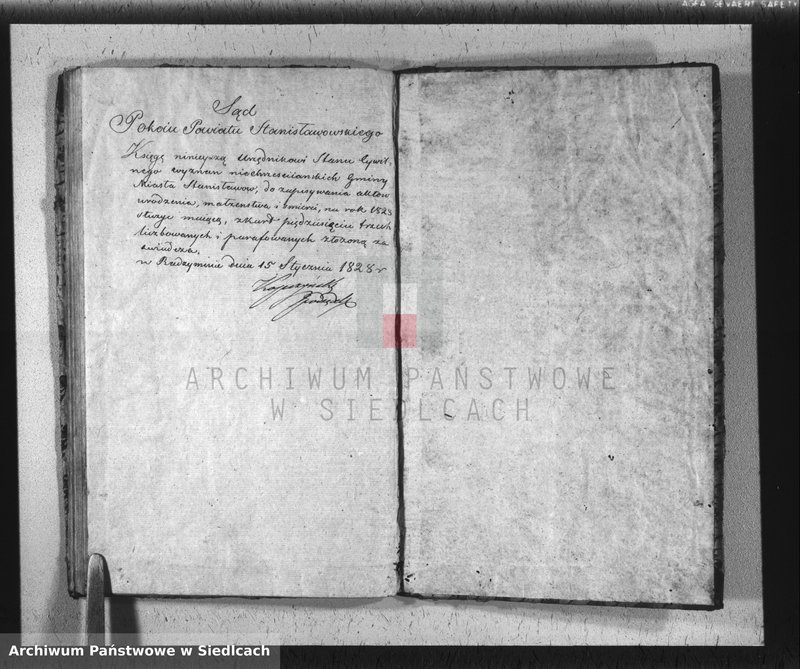 AGFA GEVAERT SAFETY
Sąd
Pokoiu Powiatu Stanisławowskiego
Księgę ninieyszą Urzędnikowi Stanu Cywil-
nego wyznań niechrześciańskich Gminy
Miasta Stanisławow, do zapisywania aktow
urodzenia, małżeństwa i śmierci, na rok 1828
służyć maiącą, z kart pięćdziesięciu trzech
liczbowanych i parafowanych złożoną za
świadcza.
w Radzyminie dnia 15 Stycznia 1828 r
ARCHIWUM PAŃSTWOWE
W SIEDLCACH
Archiwum Państwowe w Siedlcach